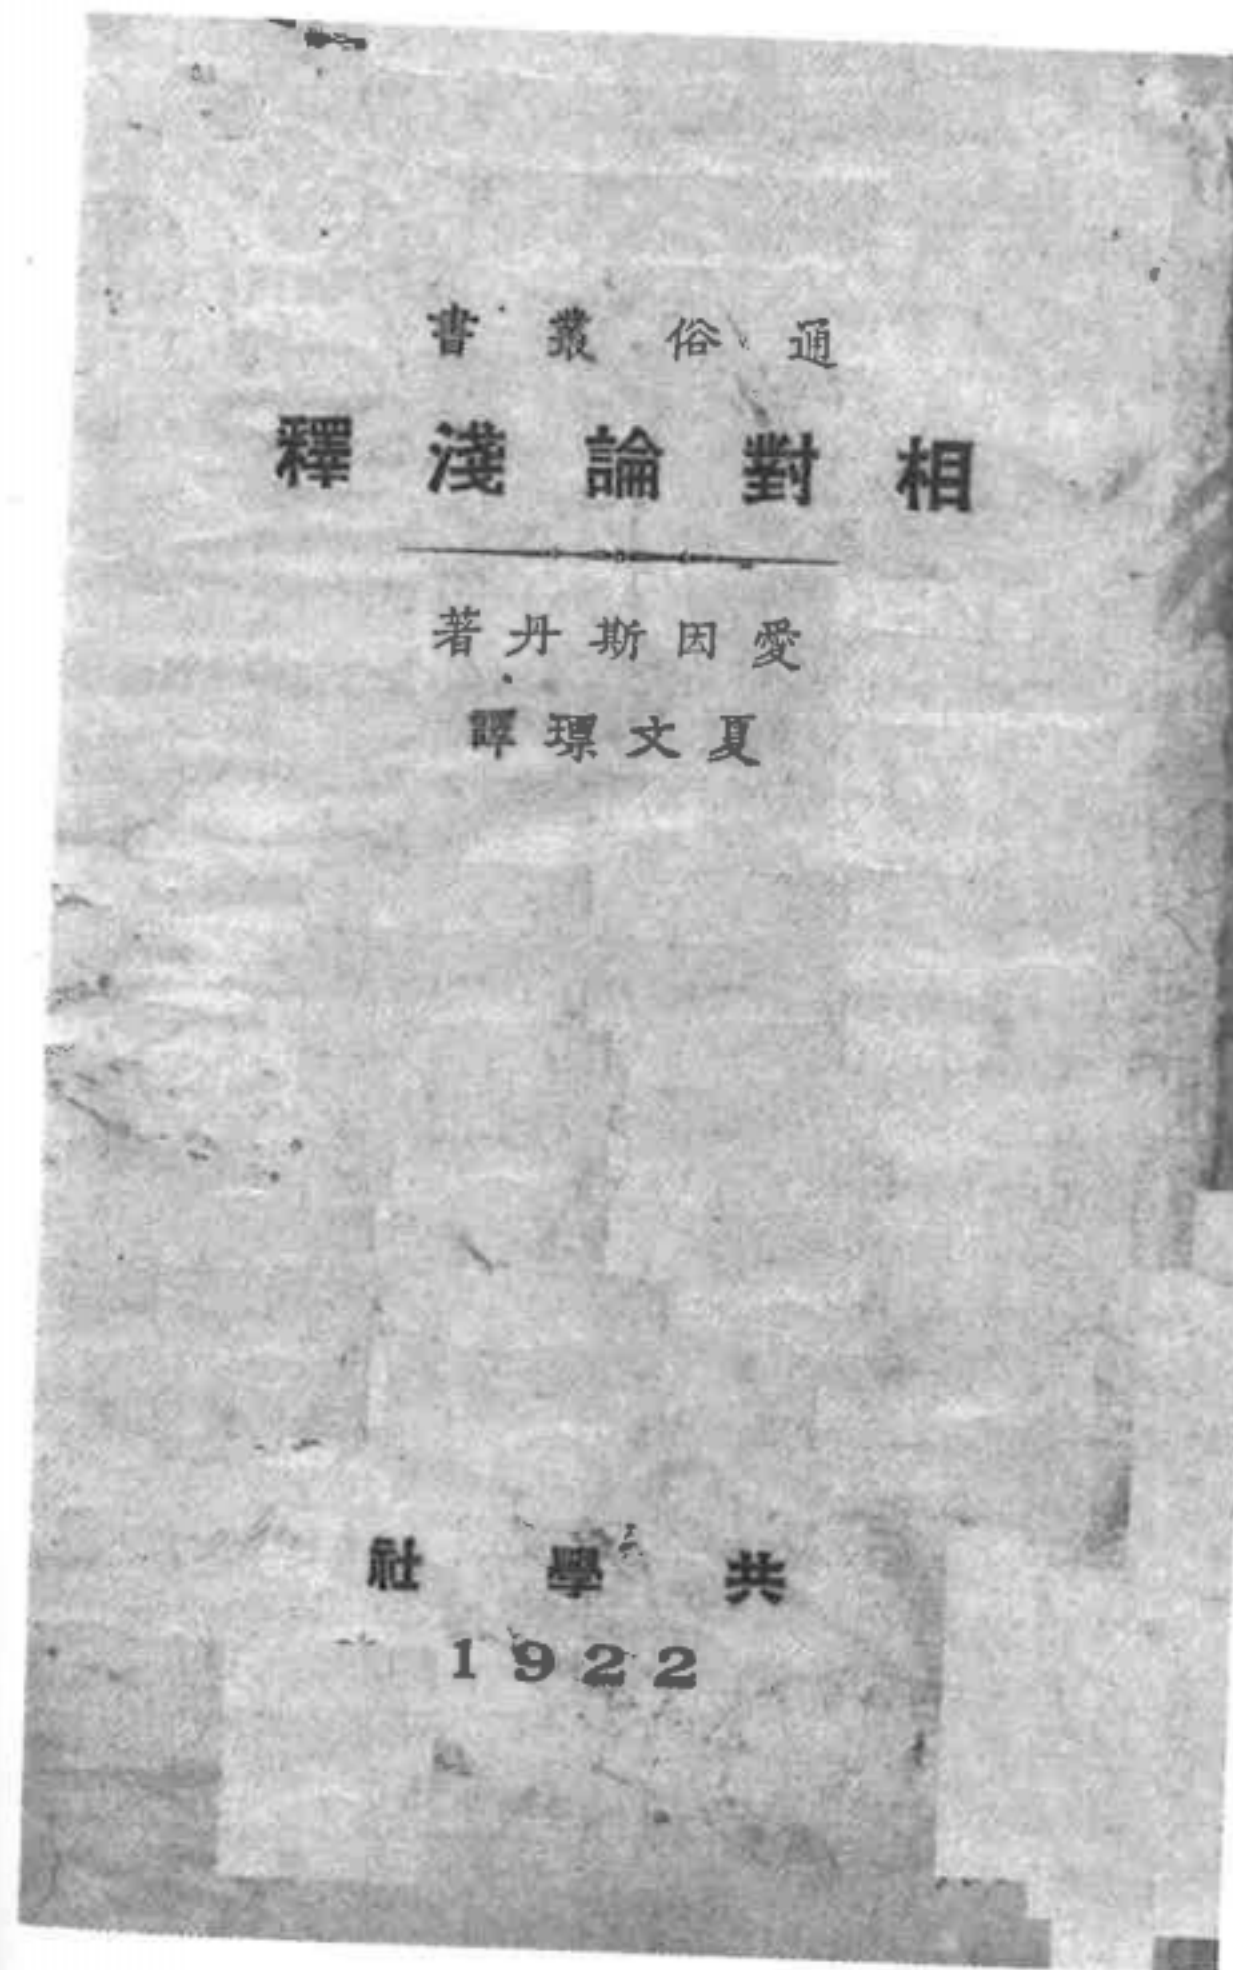 通俗叢書
相對論淺釋
愛因斯丹著
夏文瑮譯
共學社
1922